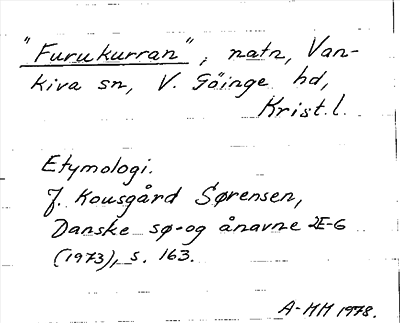 "Furukurran", natn, Van-
kiva sn, V. Göinge hd,
Krist.l.
Etymologi.
J. Kousgård Sørensen,
Danske sø- og ånavne 2E-G
(1973), s. 163.
A-HH 1978.